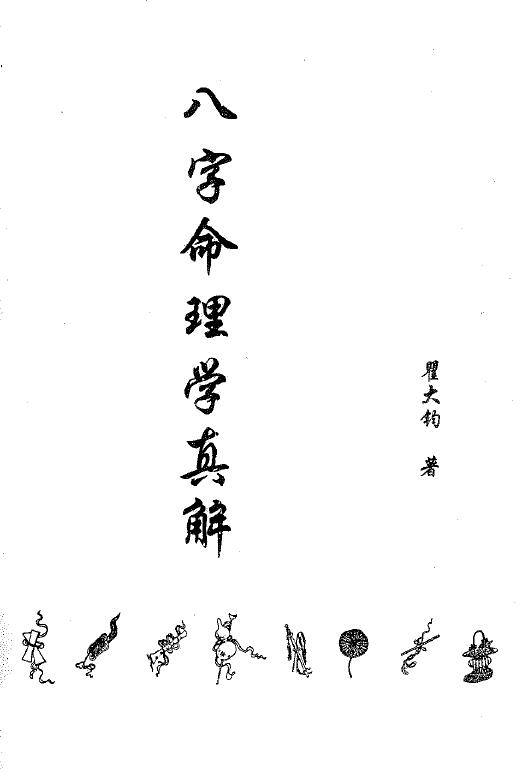 八字命理学真解
瞿大鈞 著